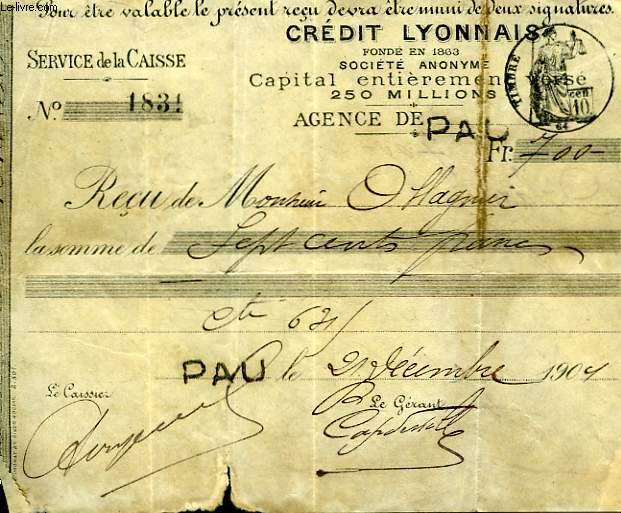 Pour être valable le présent reçu devra être muni de deux signatures.
CRÉDIT LYONNAIS
FONDÉ EN 1863
SOCIÉTÉ ANONYME
Capital entièrement versé
250 MILLIONS
SERVICE de la CAISSE
No. 1831
AGENCE DE PAU
TIMBRE
10
Fr. 700-
Reçu de Monsieur Ollagnier
la somme de Sept cents francs
PAU le 21 décembre 1904
Le Caissier
Le Gérant
Le-livre.com